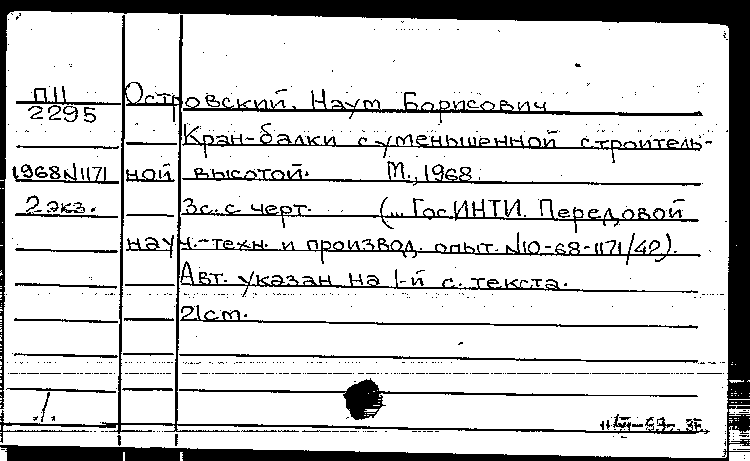 П11
2295
Островский, Наум Борисович
Кран-балки с уменьшенной строитель-
1968N1171 ной высотой. М., 1968.
2 экз. 3с. с черт. (... ГосИНТИ. Передовой
науч.-техн. и производ. опыт. N10-68-1171/40).
Авт. указан на 1-й с. текста.
21см.
.1.